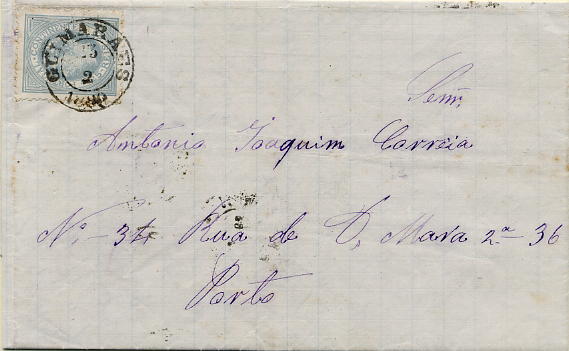 GUIMARÃES
13
2
1880
Senr.
Antonio Joaquim Correia
Nº - 34 Rua de D. Maria 2ª 36
Porto